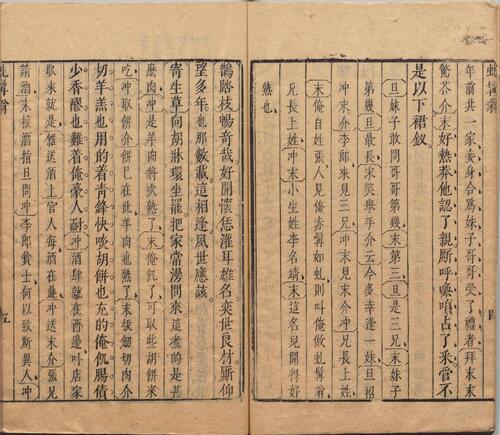 虬髯翁 四
年前共一家妾身合爲妹子哥哥受了禮者拜末末
驚介末好熱莽他認了親廝呼喚咱占了釆管不
是以下裙釵
旦妹子敢問哥哥第幾末第三旦是末妹子
第幾旦最長末笑舉手介云今多幸逢一妹旦招
末介李郎來見三兄沖見末介沖兄長上姓
末俺自姓張人見俺赤髯如虬則叫俺做虬髯翁
兄長上姓沖末小生姓李名靖末這名兒聞得好
熟也
鵲踏枝暢奇哉好開懷怎灌耳雄名奕世良材廝仰
望多年也那數載這相逢夙世應該
寄生草向胡牀環坐罷把家常澇問來這煮的是甚
麽肉沖是羊肉將次熟了末俺飢了可取些胡餅來
吃沖取餅介餅已在此羊肉也熟了末拔劒切肉介
切羊羔也用的着青鋒快啖胡餅也充的俺飢腸債
少香醪也難着俺豪人耐沖酒肆就在西邊叫店家
取來就是雜送酒上官人每酒在此沖送末介張兄
請酒末接酒指旦問沖李郎貧士何以致斯異人沖
虬髯翁 五